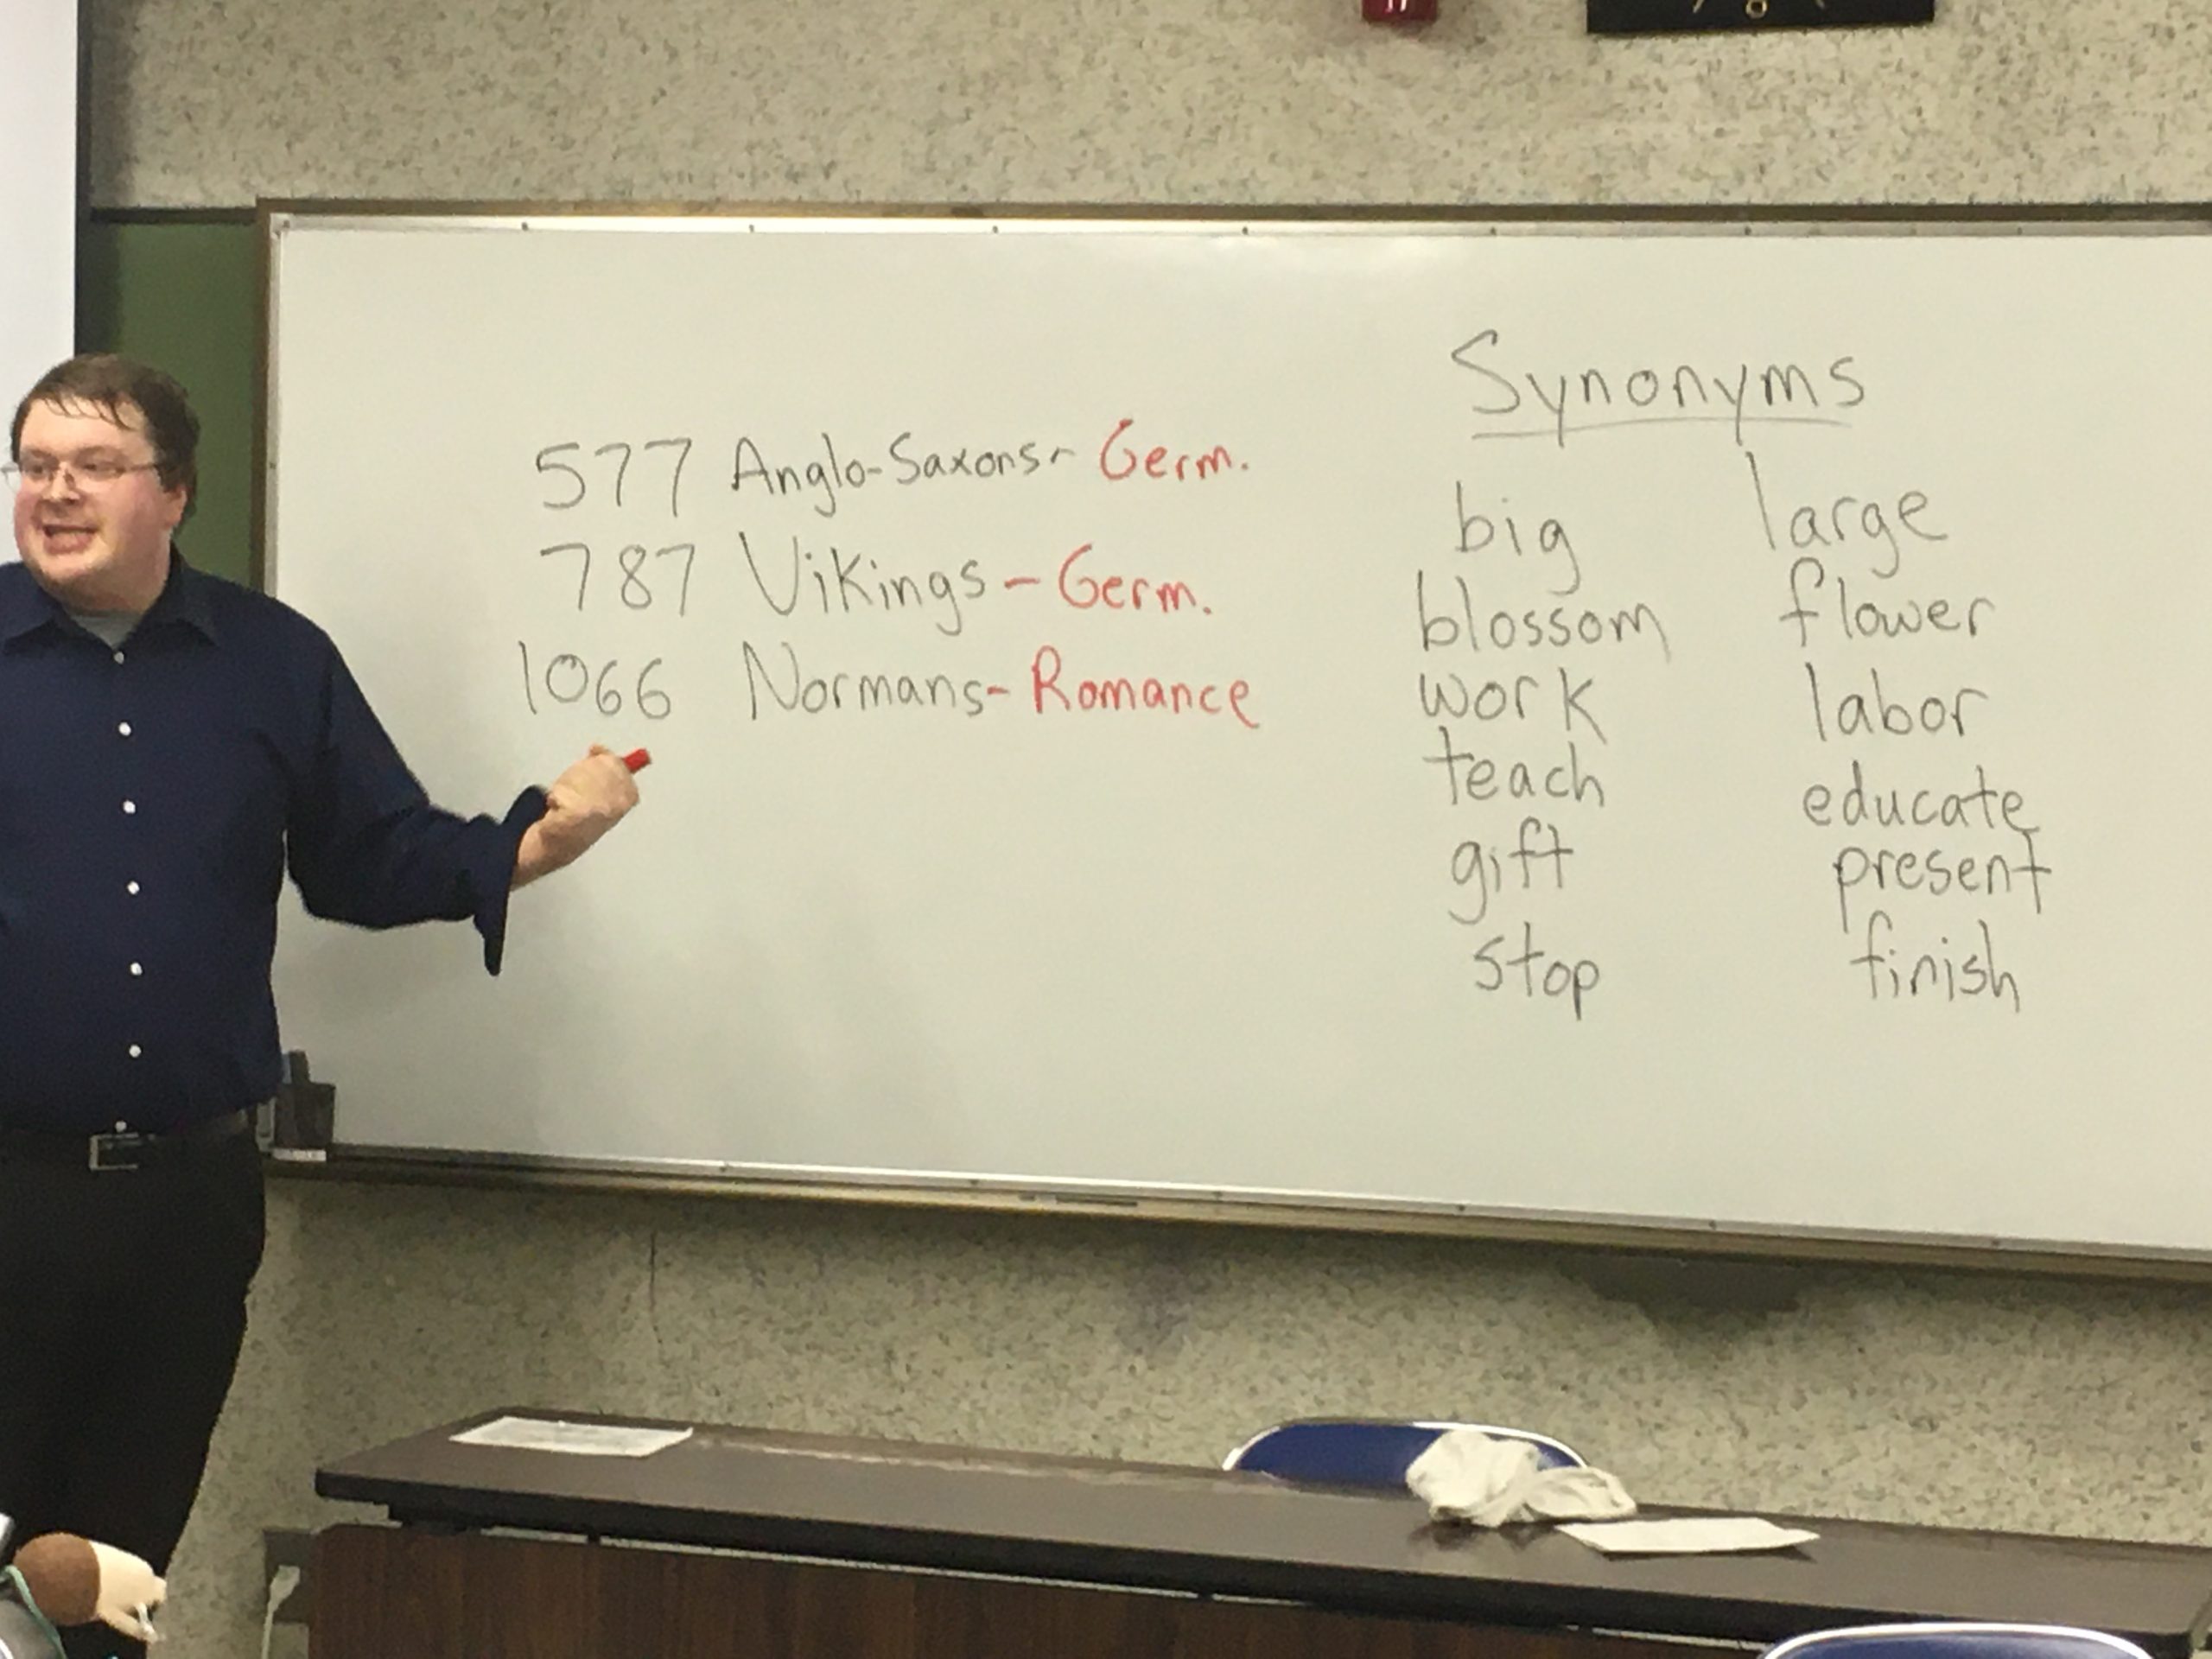 577 Anglo-Saxons - Germ.
787 Vikings - Germ.
1066 Normans - Romance
Synonyms
big large
blossom flower
work labor
teach educate
gift present
stop finish